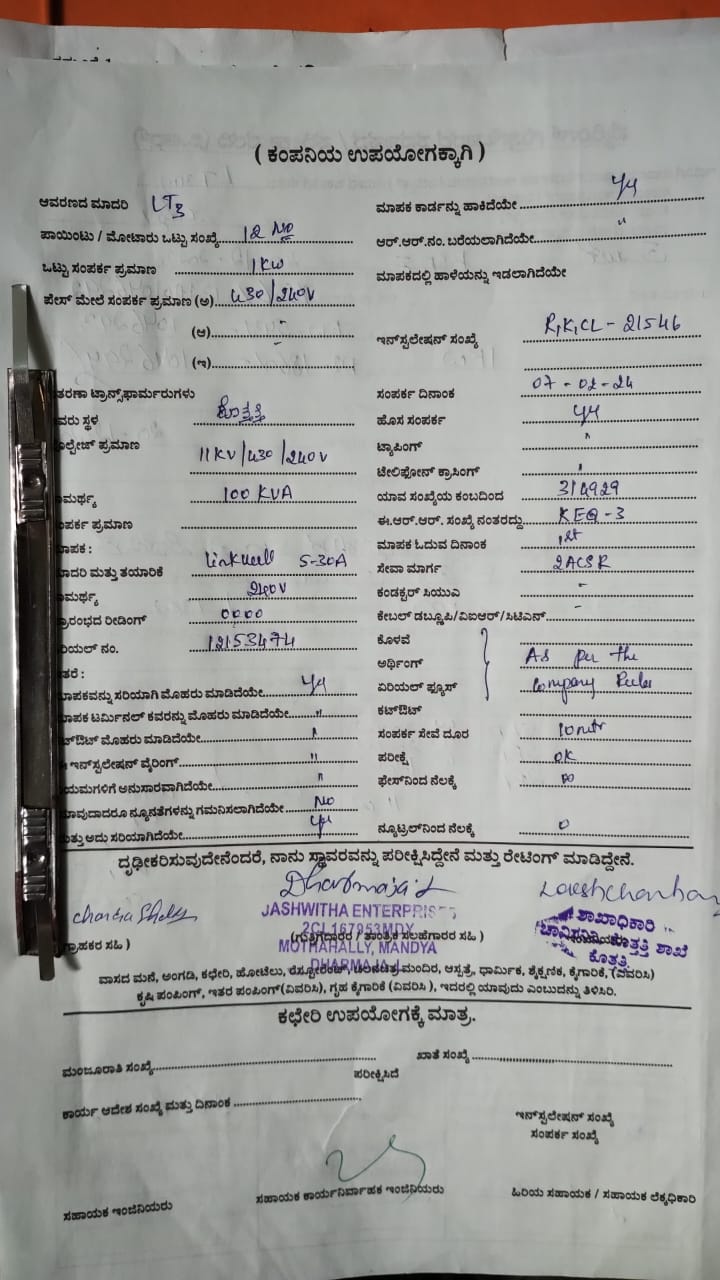 ( ಕಂಪನಿಯ ಉಪಯೋಗಕ್ಕಾಗಿ )
ಆವರಣದ ಮಾದರಿ LT3
ಪಾಯಿಂಟು / ಮೋಟಾರು ಒಟ್ಟು ಸಂಖ್ಯೆ 12 No
ಒಟ್ಟು ಸಂಪರ್ಕ ಪ್ರಮಾಣ 1KW
ಪೇಸ್ ಮೇಲೆ ಸಂಪರ್ಕ ಪ್ರಮಾಣ (ಅ) 430/240V
(ಆ) -
(ಇ) -
ತರಣಾ ಟ್ರಾನ್ಸ್‌ಫಾರ್ಮರುಗಳು
ವರು ಸ್ಥಳ ಕೊತ್ತತ್ತಿ
ಲ್ಟೇಜ್ ಪ್ರಮಾಣ 11KV/430/240V
ಮರ್ಥ್ಯ 100 KVA
ಪರ್ಕ ಪ್ರಮಾಣ
ಾಪಕ :
ಾದರಿ ಮತ್ತು ತಯಾರಿಕೆ Linkwell 5-30A
ಮರ್ಥ್ಯ 240V
್ರಾರಂಭದ ರೀಡಿಂಗ್ 0000
ರಿಯಲ್ ನಂ. 12153474
ತರೆ :
ಾಪಕವನ್ನು ಸರಿಯಾಗಿ ಮೊಹರು ಮಾಡಿದೆಯೇ
ಾಪಕ ಟರ್ಮಿನಲ್ ಕವರನ್ನು ಮೊಹರು ಮಾಡಿದೆಯೇ "
ಟ್‌ಔಟ್ ಮೊಹರು ಮಾಡಿದೆಯೇ "
ಇನ್‌ಸ್ಟಲೇಷನ್ ವೈರಿಂಗ್ "
ಯಮಗಳಿಗೆ ಅನುಸಾರವಾಗಿದೆಯೇ "
ಾವುದಾದರೂ ನ್ಯೂನತೆಗಳನ್ನು ಗಮನಿಸಲಾಗಿದೆಯೇ No
ಮತ್ತು ಅದು ಸರಿಯಾಗಿದೆಯೇ
ಮಾಪಕ ಕಾರ್ಡನ್ನು ಹಾಕಿದೆಯೇ
ಆರ್.ಆರ್.ನಂ. ಬರೆಯಲಾಗಿದೆಯೇ "
ಮಾಪಕದಲ್ಲಿ ಹಾಳೆಯನ್ನು ಇಡಲಾಗಿದೆಯೇ
ಇನ್‌ಸ್ಟಲೇಷನ್ ಸಂಖ್ಯೆ R,K,CL - 21546
ಸಂಪರ್ಕ ದಿನಾಂಕ 07-02-24
ಹೊಸ ಸಂಪರ್ಕ
ಟ್ಯಾಪಿಂಗ್ "
ಟೇಲಿಫೋನ್ ಕ್ರಾಸಿಂಗ್ "
ಯಾವ ಸಂಖ್ಯೆಯ ಕಂಬದಿಂದ 314929
ಈ.ಆರ್.ಆರ್. ಸಂಖ್ಯೆ ನಂತರದ್ದು KEQ-3
ಮಾಪಕ ಓದುವ ದಿನಾಂಕ 1st
ಸೇವಾ ಮಾರ್ಗ 2ACSR
ಕಂಡಕ್ಟರ್ ಸಿಯುಎ -
ಕೇಬಲ್ ಡಬ್ಲ್ಯೂಪಿ/ವಿಐಆರ್/ಸಿಟಿಎನ್ -
ಕೊಳವೆ
ಅರ್ಥಿಂಗ್ As per the
ಏರಿಯಲ್ ಫ್ಯೂಸ್ Company Rules
ಕಟ್‌ಔಟ್
ಸಂಪರ್ಕ ಸೇವೆ ದೂರ 10 mtr
ಪರೀಕ್ಷೆ OK
ಫೇಸ್‌ನಿಂದ ನೆಲಕ್ಕೆ ∞
ನ್ಯೂಟ್ರಲ್‌ನಿಂದ ನೆಲಕ್ಕೆ 0
ದೃಢೀಕರಿಸುವುದೇನೆಂದರೆ, ನಾನು ಸ್ಥಾವರವನ್ನು ಪರೀಕ್ಷಿಸಿದ್ದೇನೆ ಮತ್ತು ರೇಟಿಂಗ್ ಮಾಡಿದ್ದೇನೆ.
JASHWITHA ENTERPRISES
2CL167953MDY
MOTHAHALLY, MANDYA
DHARMAJA
ಶಾಖಾಧಿಕಾರಿ
ಚಾವಿಸನಿನಿ ಕೊತ್ತತ್ತಿ ಶಾಖೆ
ಕೊತ್ತತ್ತಿ
್ರಾಹಕರ ಸಹಿ )
(ಗುತ್ತಿಗೆದಾರರ / ತಾಂತ್ರಿಕ ಸಲಹೆಗಾರರ ಸಹಿ )
ವಾಸದ ಮನೆ, ಅಂಗಡಿ, ಕಛೇರಿ, ಹೋಟೆಲು, ರೆಸ್ಟೋರೆಂಟ್, ಚಲನಚಿತ್ರ ಮಂದಿರ, ಆಸ್ಪತ್ರೆ, ಧಾರ್ಮಿಕ, ಶೈಕ್ಷಣಿಕ, ಕೈಗಾರಿಕೆ, (ವಿವರಿಸಿ)
ಕೃಷಿ ಪಂಪಿಂಗ್, ಇತರ ಪಂಪಿಂಗ್ (ವಿವರಿಸಿ), ಗೃಹ ಕೈಗಾರಿಕೆ (ವಿವರಿಸಿ ), ಇದರಲ್ಲಿ ಯಾವುದು ಎಂಬುದನ್ನು ತಿಳಿಸಿರಿ.
ಕಛೇರಿ ಉಪಯೋಗಕ್ಕೆ ಮಾತ್ರ.
ಮಂಜೂರಾತಿ ಸಂಖ್ಯೆ
ಖಾತೆ ಸಂಖ್ಯೆ
ಪರೀಕ್ಷಿಸಿದೆ
ಕಾರ್ಯ ಆದೇಶ ಸಂಖ್ಯೆ ಮತ್ತು ದಿನಾಂಕ
ಇನ್‌ಸ್ಟಲೇಷನ್ ಸಂಖ್ಯೆ
ಸಂಪರ್ಕ ಸಂಖ್ಯೆ
ಸಹಾಯಕ ಇಂಜಿನಿಯರು
ಸಹಾಯಕ ಕಾರ್ಯನಿರ್ವಾಹಕ ಇಂಜಿನಿಯರು
ಹಿರಿಯ ಸಹಾಯಕ / ಸಹಾಯಕ ಲೆಕ್ಕಧಿಕಾರಿ